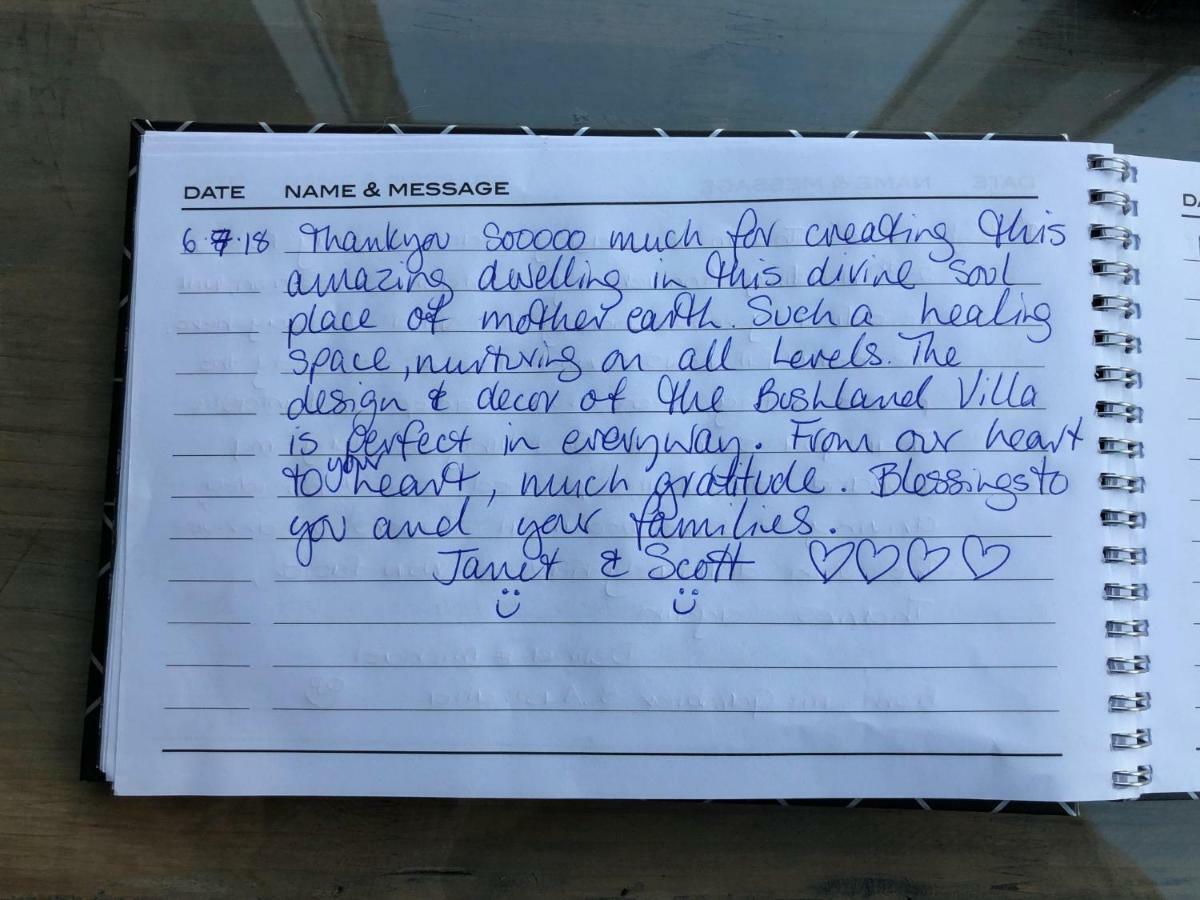 DATE NAME & MESSAGE
6.7.18 Thankyou Sooooo much for creating this
amazing dwelling in this divine soul
place of mother earth. Such a healing
space, nurturing on all Levels. The
design & decor of the Bushland Villa
is perfect in everyway. From our heart
to your heart, much gratitude. Blessings to
you and your families.
Janet & Scott ♡♡♡♡